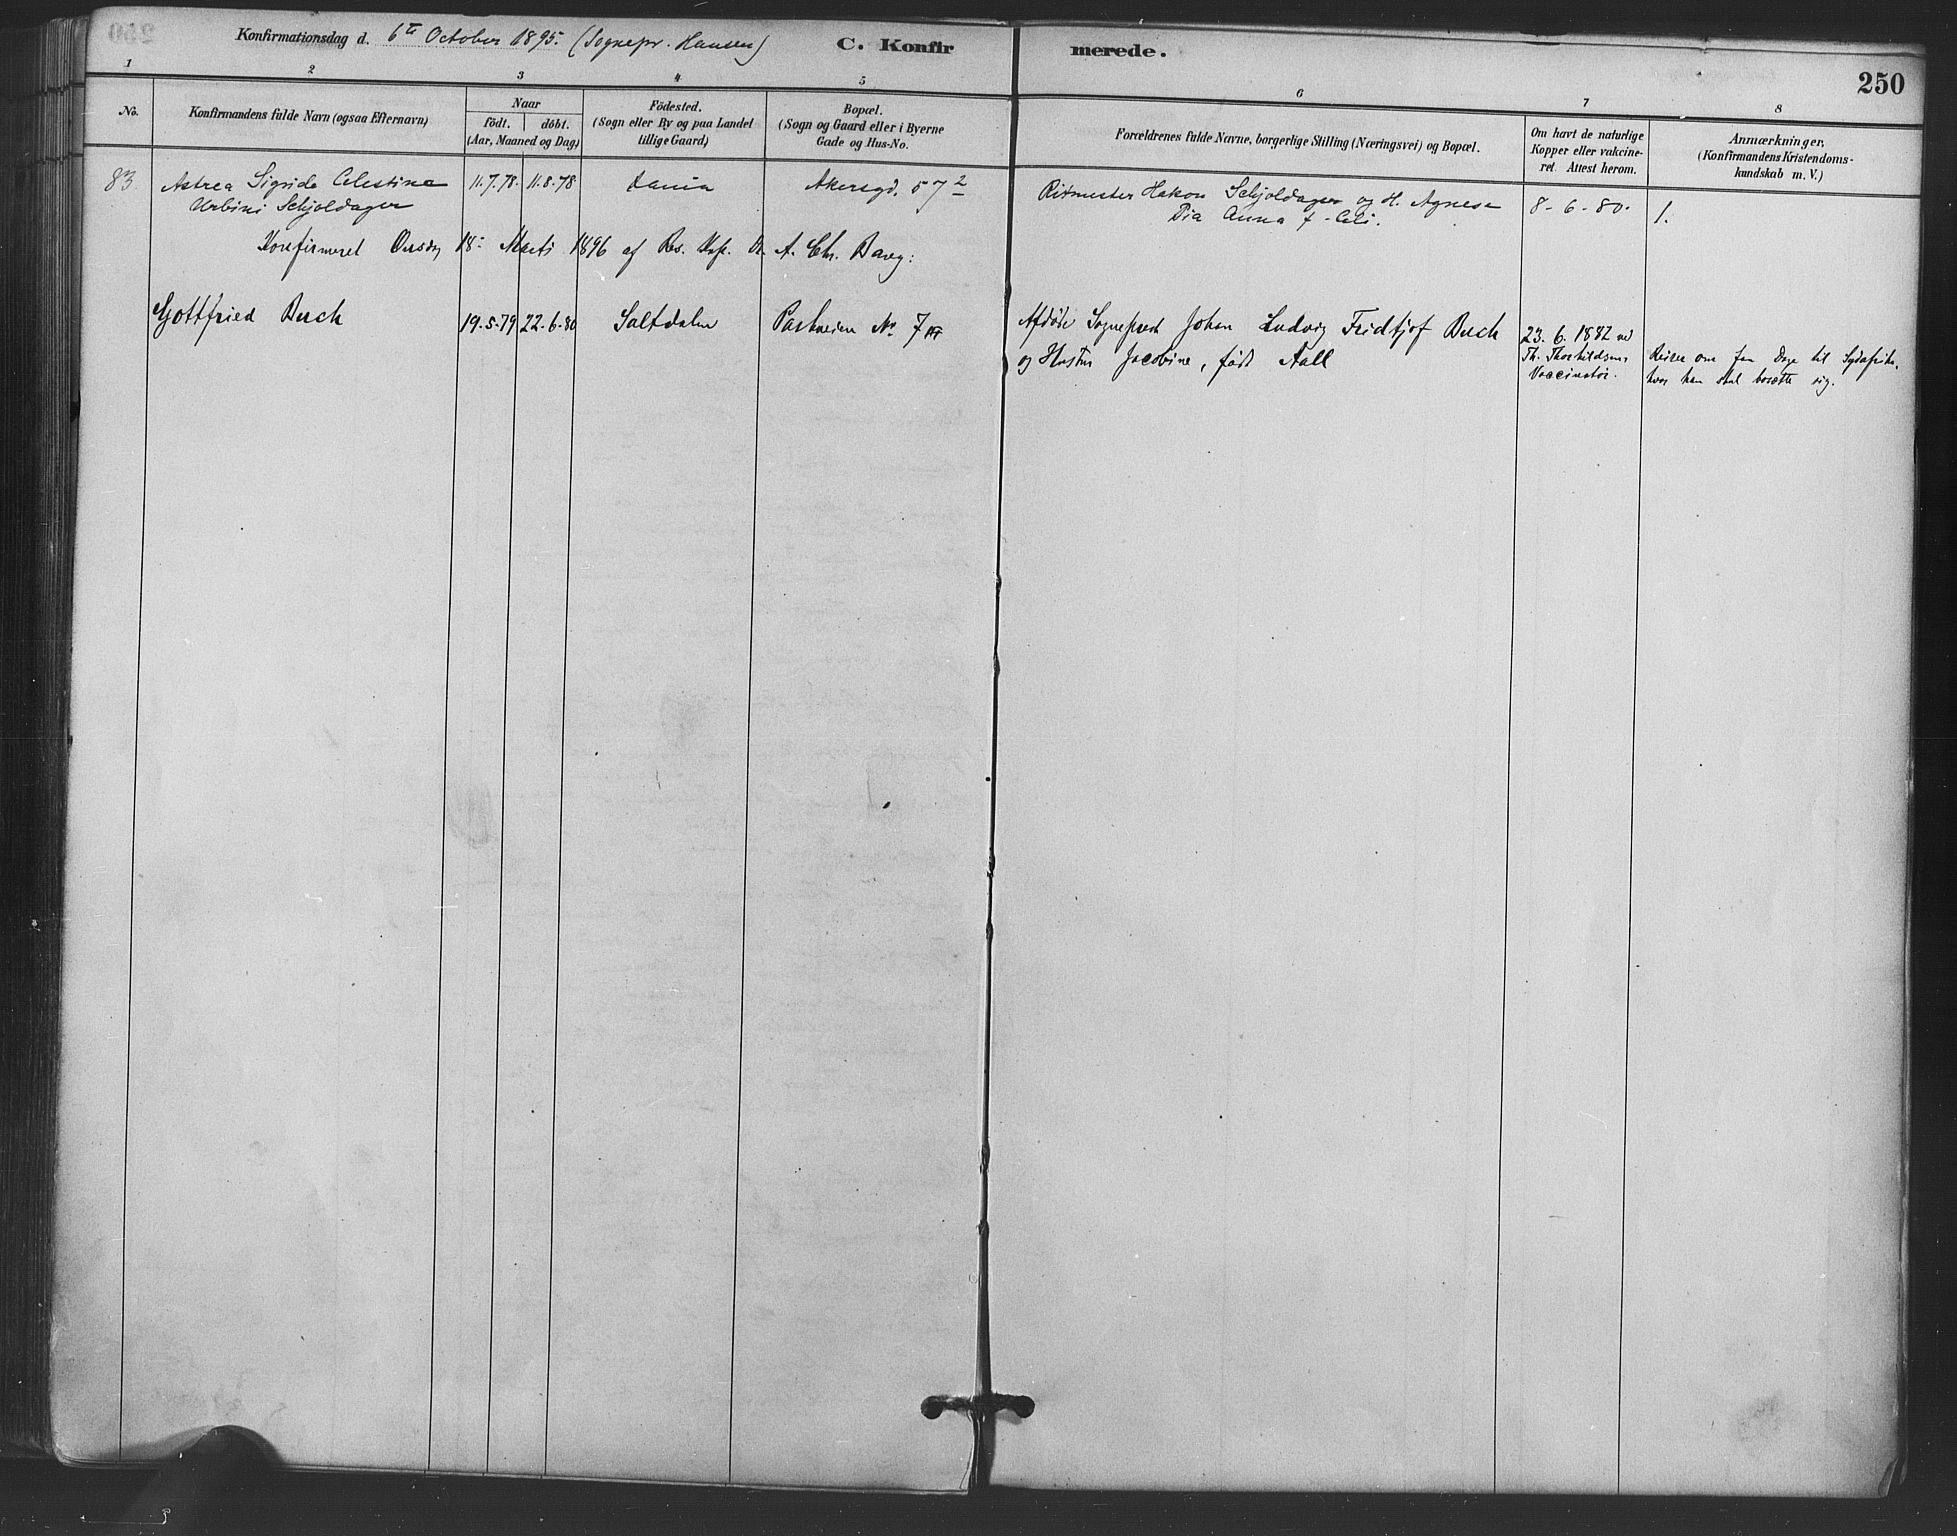 Konfirmationsdag d. 6te October 1895. (Sognepr. Hansen) C. Konfirmerede.
250
1 2 3 4 5 6 7 8
No.
Konfirmandens fulde Navn (ogsaa Efternavn)
Naar
födt. döbt.
(Aar, Maaned og Dag)
Födested.
(Sogn eller By og paa Landet
tillige Gaard)
Bopæl.
(Sogn og Gaard eller i Byerne
Gade og Hus-No.
Forældrenes fulde Navne, borgerlige Stilling (Næringsvei) og Bopæl.
Om havt de naturlige
Kopper eller vakcine-
ret Attest herom.
Anmærkninger,
(Konfirmandens Kristendoms-
kundskab m. V.)
83. Astrea Sigrida Celestina 11.7.78. 11.8.78 Akersgd. 57² Ritmester Hakon Schjoldager og H. Agnese 8-6-80. 1.
Urbini Schjoldager Pia Anna f.
Konfirmeret Onsdag 18de Marts 1896 af Res. Kap. Dr. A. Chr. Bang:
Gottfried Buch 19.5.79 22.6.80 Saltdalen Parkveien No 7 III Afdöde Sogneprest Johan Ludvig Fridtjof Buch 23.6.1882 ved
og Hustru Jacobine, född Aall Th. Thorkildsen, Reiser om faa Dage til Sydafrika,
Vaccinatör. hvor han skal bosætte sig.